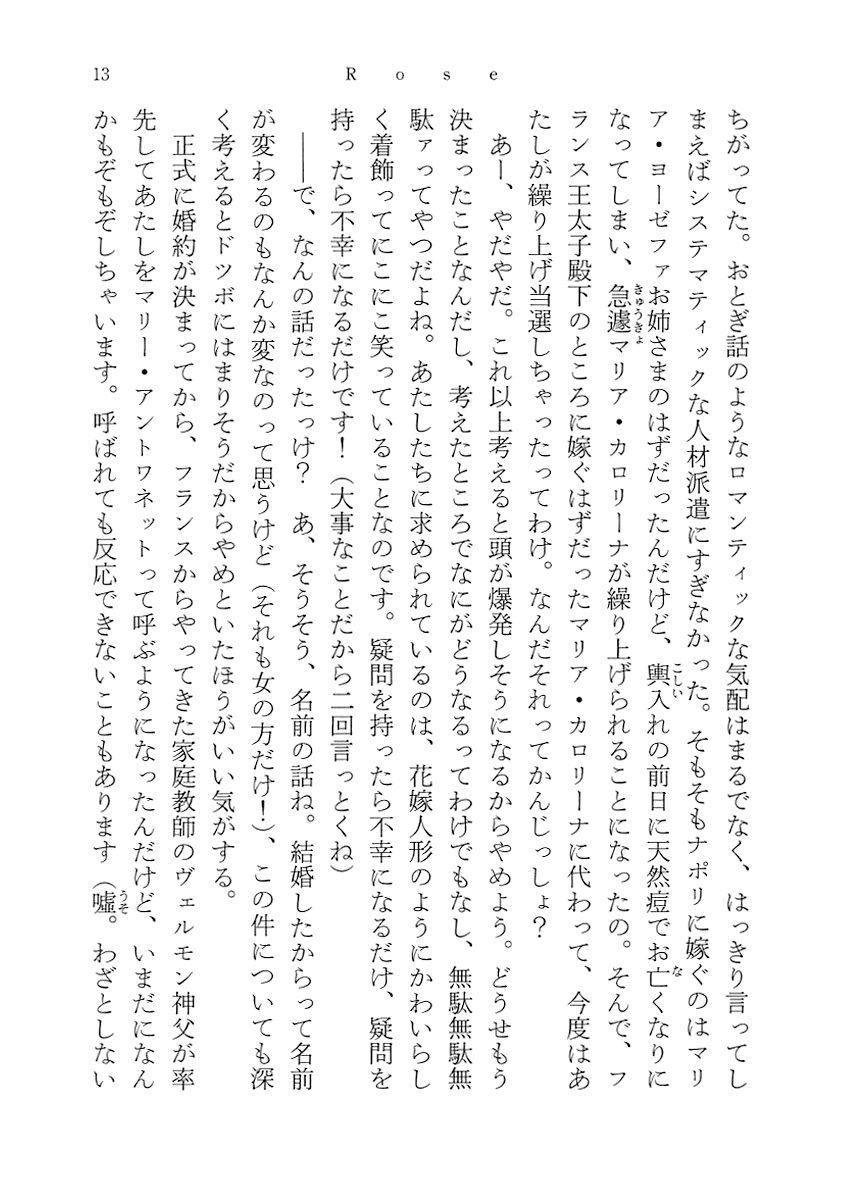 13
Rose
ちがってた。おとぎ話のようなロマンティックな気配はまるでなく、はっきり言ってし
まえばシステマティックな人材派遣にすぎなかった。そもそもナポリに嫁ぐのはマリ
ア・ヨーゼファお姉さまのはずだったんだけど、輿入れの前日に天然痘でお亡くなりに
なってしまい、急遽マリア・カロリーナが繰り上げられることになったの。そんで、フ
ランス王太子殿下のところに嫁ぐはずだったマリア・カロリーナに代わって、今度はあ
たしが繰り上げ当選しちゃったってわけ。なんだそれってかんじっしょ？
あー、やだやだ。これ以上考えると頭が爆発しそうになるからやめよう。どうせもう
決まったことなんだし、考えたところでなにがどうなるってわけでもなし、無駄無駄無
駄ァってやつだよね。あたしたちに求められているのは、花嫁人形のようにかわいらし
く着飾ってにこにこ笑っていることなのです。疑問を持ったら不幸になるだけ、疑問を
持ったら不幸になるだけです！（大事なことだから二回言っとくね）
――で、なんの話だったっけ？　あ、そうそう、名前の話ね。結婚したからって名前
が変わるのもなんか変なのって思うけど（それも女の方だけ！）、この件についても深
く考えるとドツボにはまりそうだからやめといたほうがいい気がする。
正式に婚約が決まってから、フランスからやってきた家庭教師のヴェルモン神父が率
先してあたしをマリー・アントワネットって呼ぶようになったんだけど、いまだになん
かもぞもぞしちゃいます。呼ばれても反応できないこともあります（嘘。わざとしない